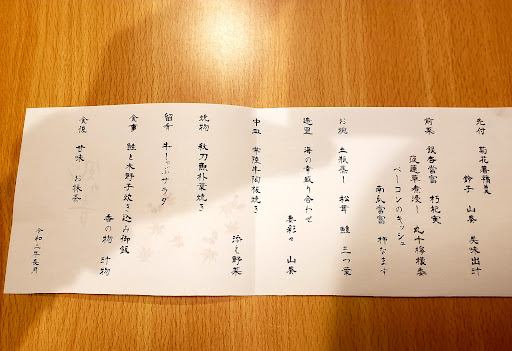 先付 菊花薯蕷羹
鈴子 山葵 美味出汁
前菜 銀杏當富 朽杞実
菠薐草煮浸し 丸十檸檬煮
ベーコンのキッシュ
南瓜當富 柿なます
お椀 土瓶蒸し 松茸 鱧 三つ葉
造里 海の幸盛り合わせ
妻彩々 山葵
中皿 常陸牛陶板焼き
添え野菜
焼物 秋刀魚朴葉焼き
留肴 牛しゃぶサラダ
食事 鮭と木野子炊き込み御飯
香の物 汁物
食後 甘味 お抹茶
令和二年長月